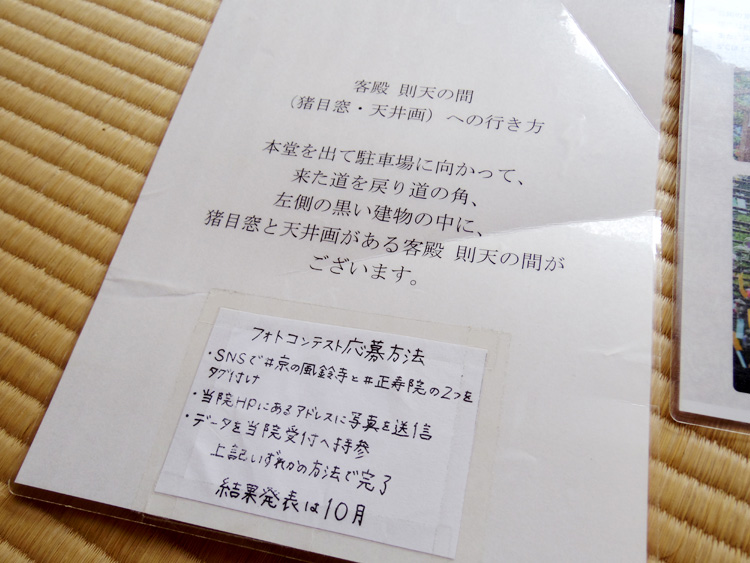 客殿 則天の間
(猪目窓・天井画)への行き方
本堂を出て駐車場に向かって、
来た道を戻り道の角、
左側の黒い建物の中に、
猪目窓と天井画がある客殿 則天の間が
ございます。
フォトコンテスト応募方法
・SNSで#京の風鈴寺と#正寿院の2つを
タグ付け
・当院HPにあるアドレスに写真を送信
・データを当院受付へ持参
上記いずれかの方法で完了
結果発表は10月